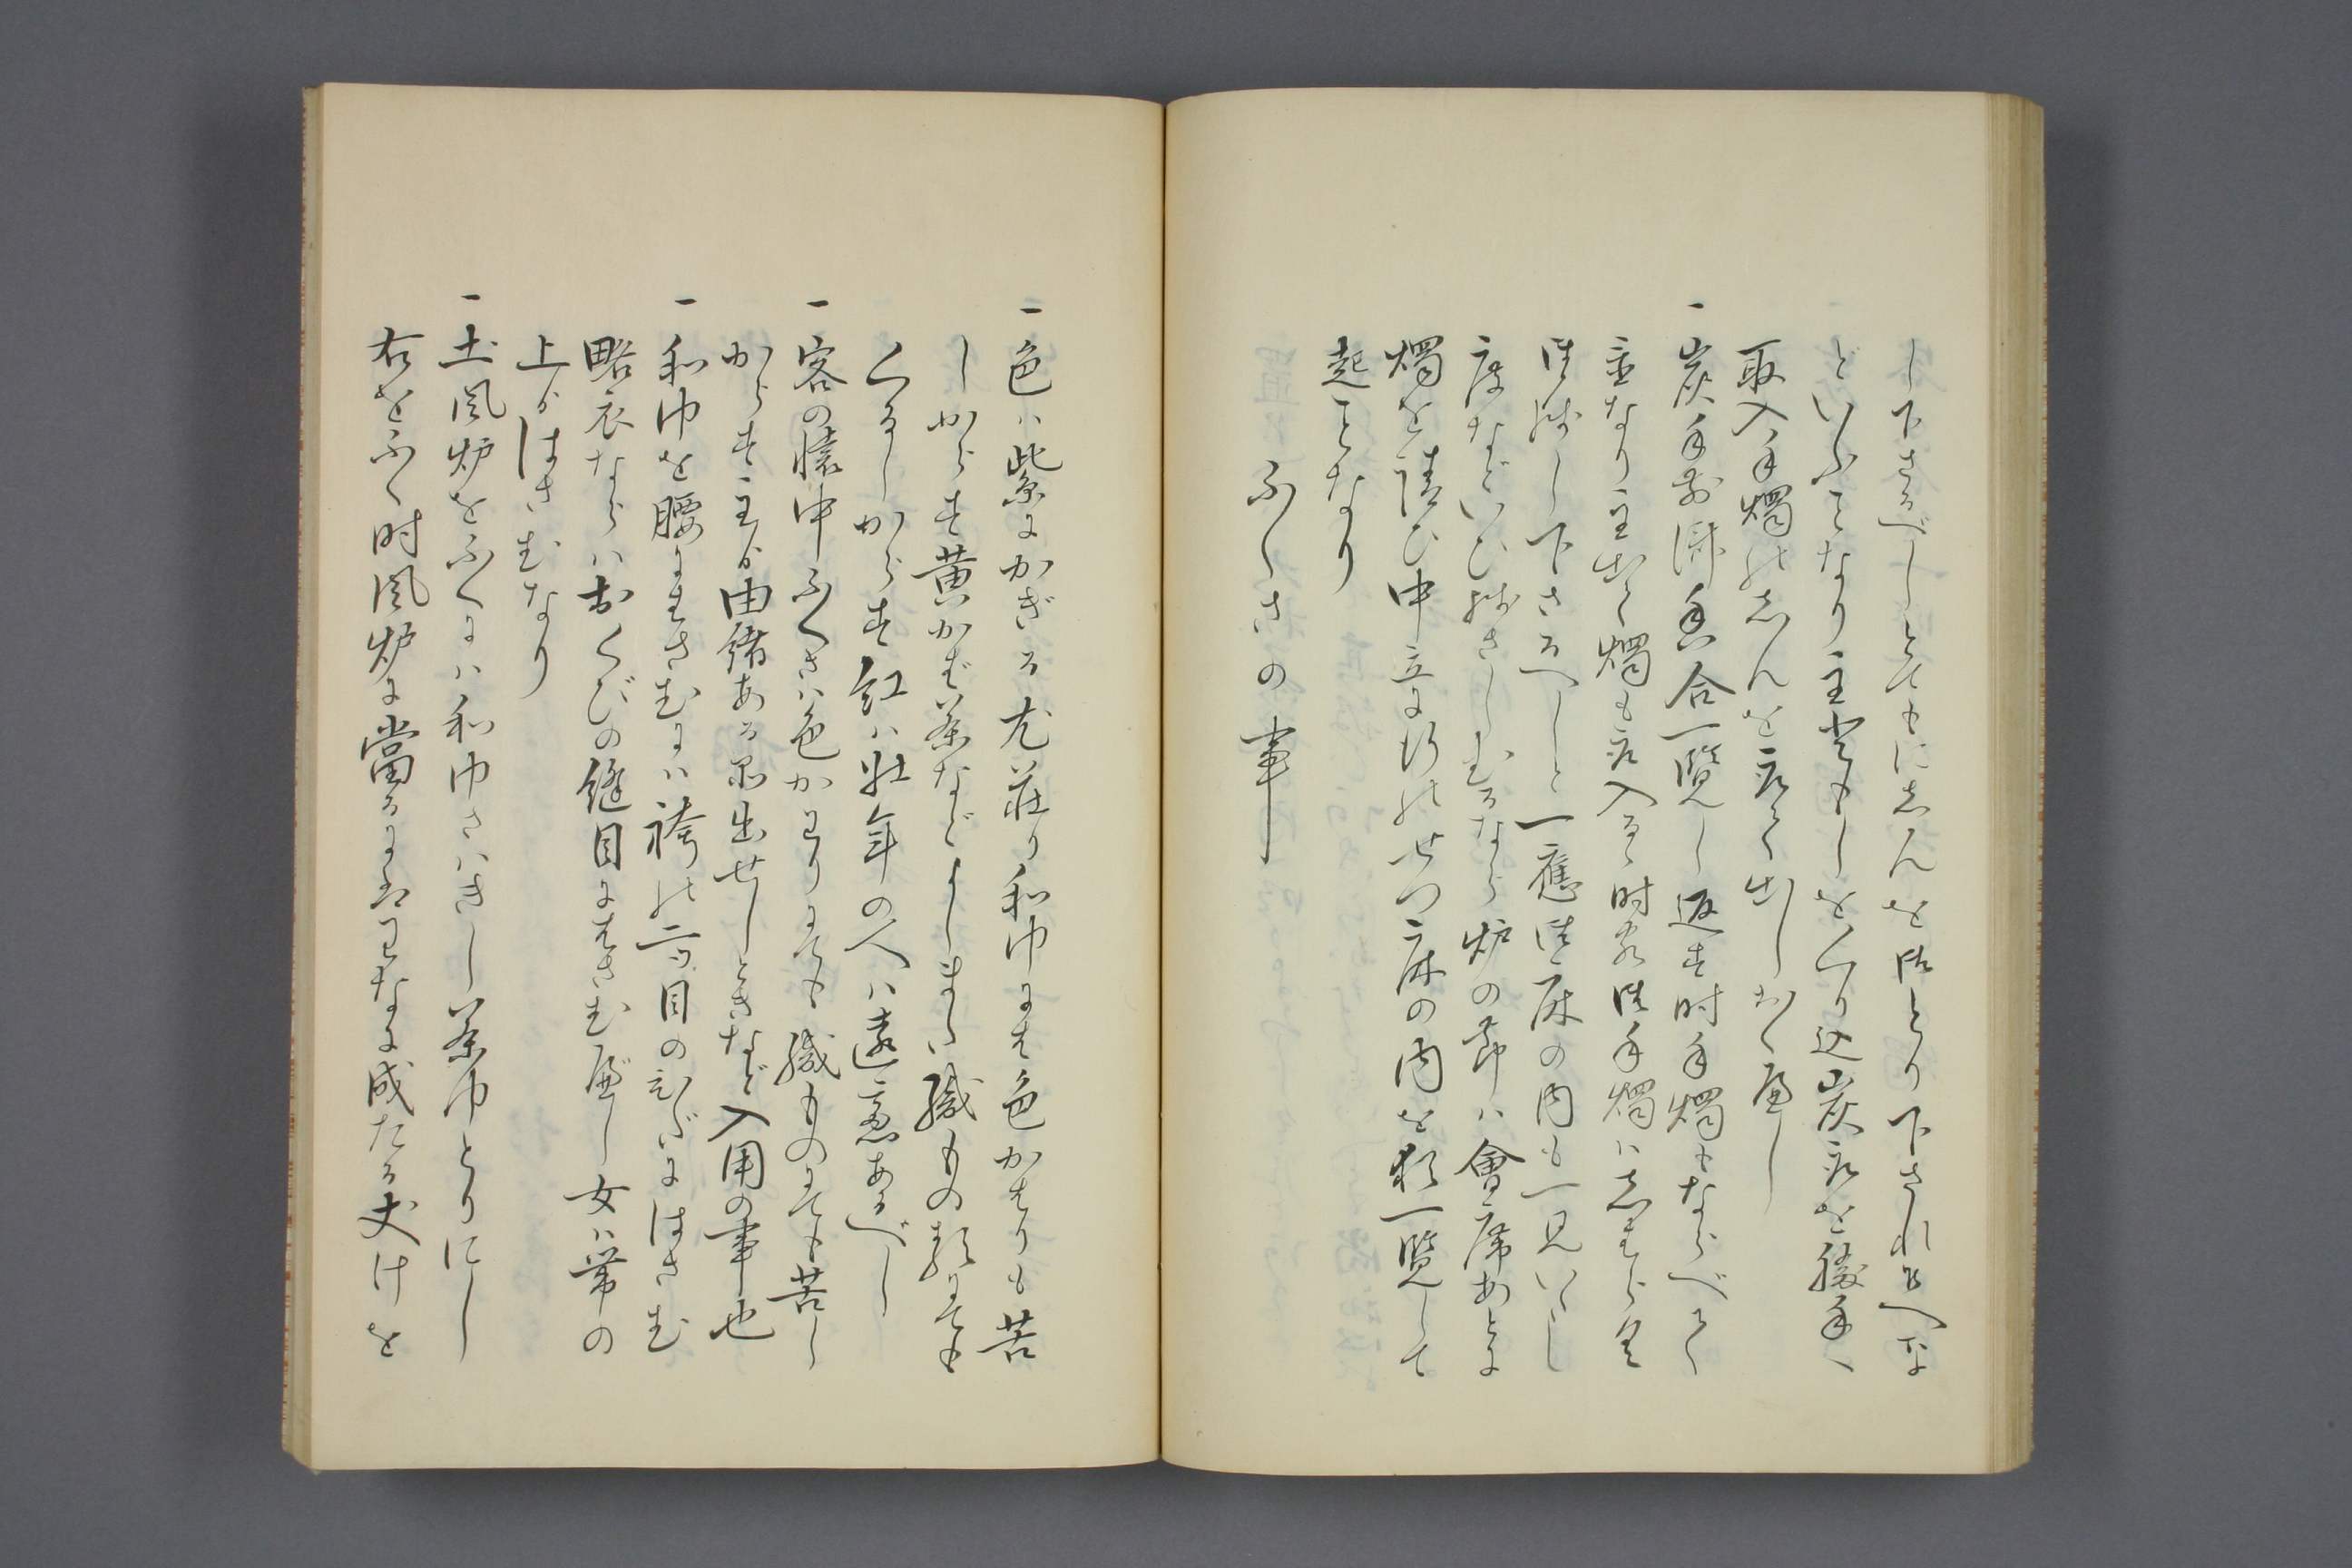 し下さるべしとてもにしんを御とり下され候へな
どいふことなり主客もしをくり込炭取を勝手へ
取入手燭のしんを取て出しおくべし
一炭手前済香合一覧し返す時手燭もならべて
置なり主出て燭も取入る時客 手燭はしばらく
 残し下さるべしと一應 床の内も一見いたし
度などいひ残さしむるなり炉の節は會席あとに
燭を請ひ中立に行のせつ床の内を 一覧して
起ことなり
ふくさの事
一色は紫にかぎる尤莊り和巾には色かはりも苦
しからす黄かば茶などよしまた織もの類にても
くるしからす紅は壮年の人は遠慮あるべし
一客の懐中ふくさは色かわりにても織ものにても苦し
からす主より由緒ある品出せしときなど入用の事也
一和巾を腰にはさむには袴の二ツ目のひだにはさむ
略衣ならはおくびの縫目にはさむべし女は帯の
上よりはさむなり
一土風炉をふくには和巾さはきし茶巾とりにし
右をふく時風炉に當るにはわなに成たる丈けを